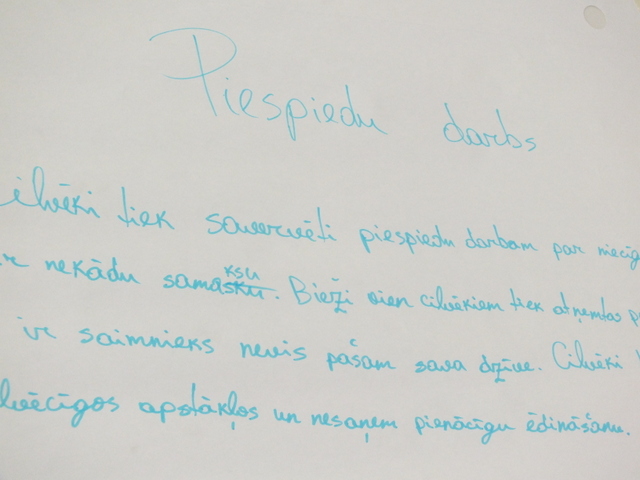 Piespiedu darbs
ilvēki tiek savervēti piespiedu darbam par niecīg
r nekādu samaksu. Bieži vien cilvēkiem tiek atņemtas p
ir saimnieks nevis pašam sava dzīve. Cilvēki
lvēcīgos apstākļos un nesaņem pienācīgu ēdināšanu.